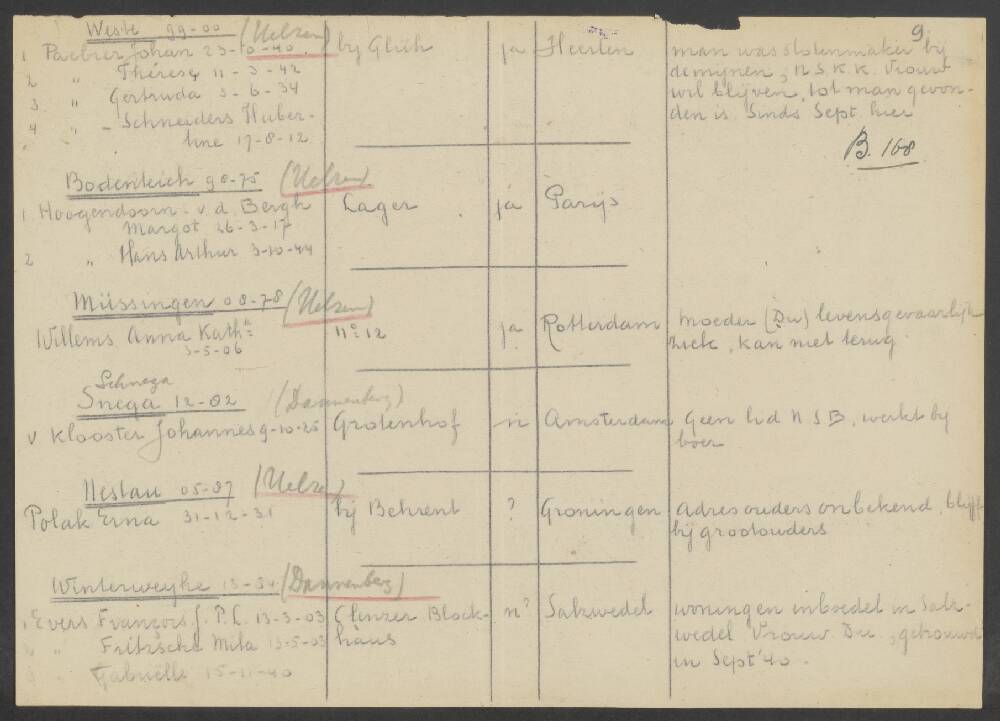 9
Weste 99-00 (Uelzen)
1 Paelner Johan 23-10-40. by Glich ja Heerlen man was slotenmaker bij
2 " Thérese 11-3-42 de mijnen, N.S.K.K. Vrouw
3 " Gertruda 3-6-34 wil blijven, tot man gevon-
4 " - Schneiders Huber- den is. Sinds Sept. hier
tine 17-8-12
B. 168
Bodenteich 90-75 (Uelzen)
1. Hoogendoorn - v. d. Bergh Lager ja Parijs
Margot 26-3-17
2 " Hans Arthur 3-10-44
Müssingen 08-78 (Uelzen)
Willems Anna Kath. no 12 ja Rotterdam moeder (Du) levensgevaarlijk
3-5-06 ziek, kan niet terug
Schnega
Snega 12-02 (Dannenberg)
v Klooster Johannes 9-10-25 Grotenhof n Amsterdam Geen lid NSB, werkt bij
boer
Nestau 05-87 (Uelzen)
Polak Erna 31-12-31 bij Behrent ? Groningen adres ouders onbekend, blijft
bij grootouders
Winterweyhe 13-54 (Dannenberg)
1 Evers François J. P. L. 13-3-03 Clenzer Block- n? Salzwedel woning en inboedel in Salz-
" Fritsche Mita 13-5-03 haus wedel Vrouw Du, getrouwd
3 Gabriëlle 15-11-40 in Sept '40.